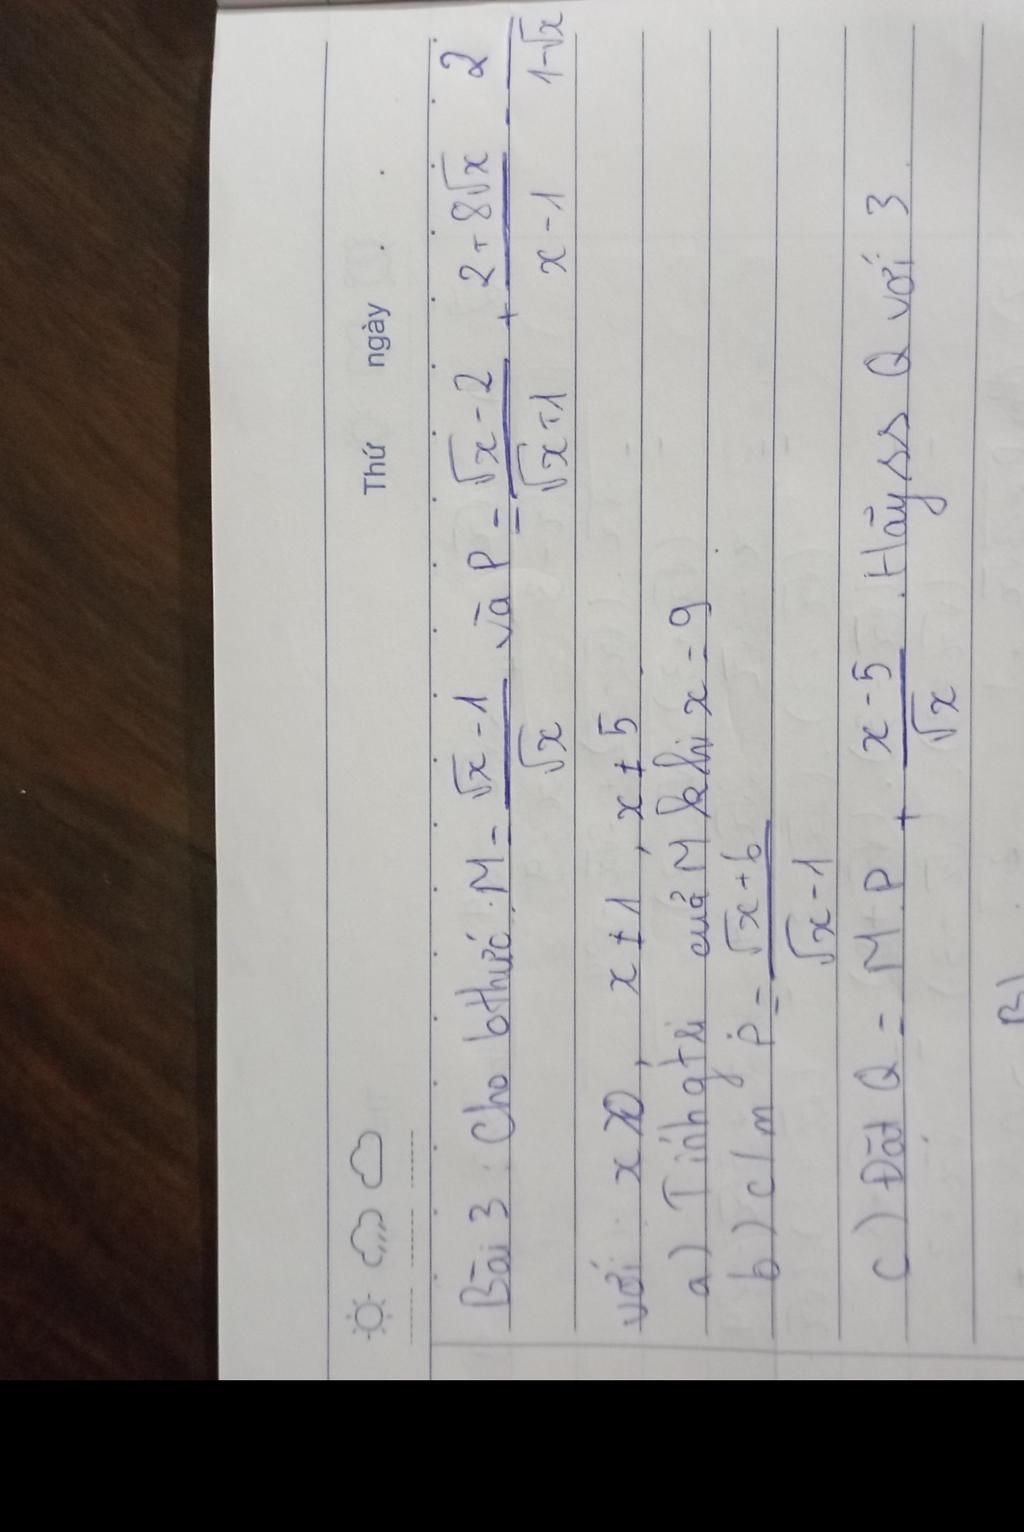 Thứ ngày . .
Bài 3 : Cho bthức M = (√x - 1)/√x và P = (√x - 2)/(√x + 1) + (2 + 8√x)/(x - 1) - 2/(1 - √x)
với x > 0, x ≠ 1, x ≠ 5
a) Tính gtrị của M khi x = 9
b) c/m P = (√x + 6)/(√x - 1)
c) Đặt Q = M.P + (x - 5)/√x . Hãy ss Q với 3.